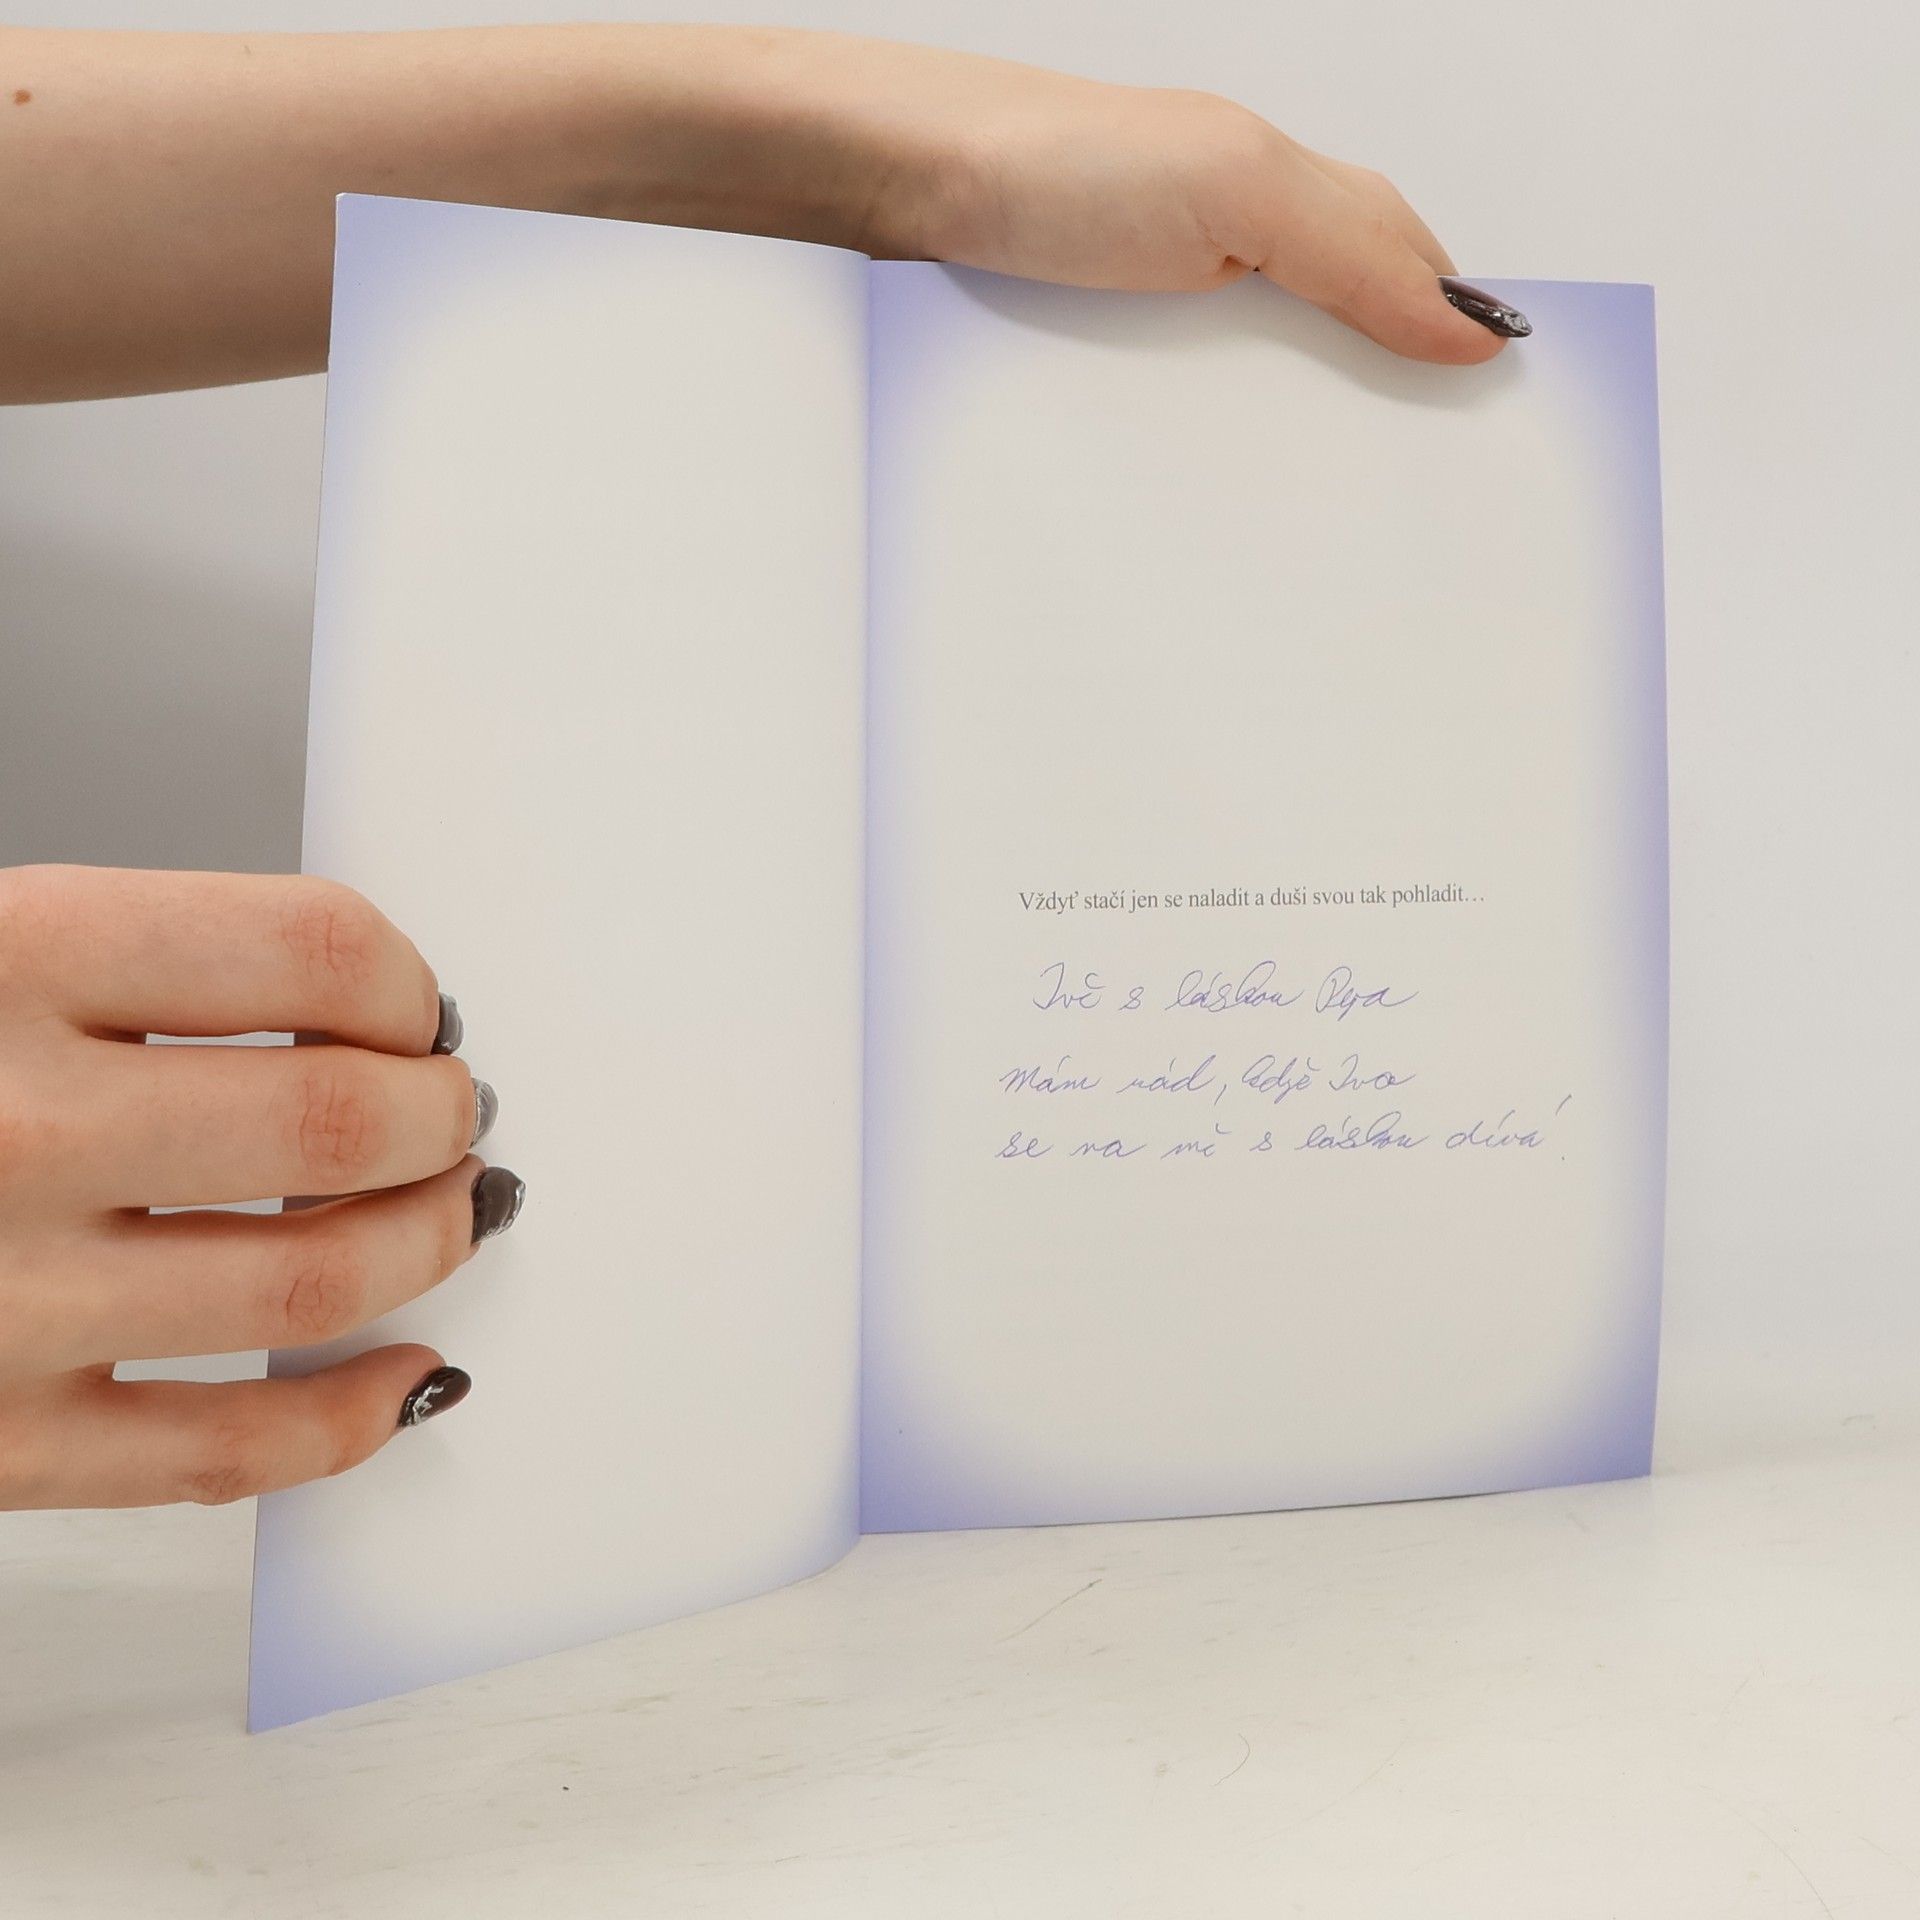 Vždyť stačí jen se naladit a duši svou tak pohladit…
Ivě s láskou Pepa
Mám rád, když Iva
se na mě s láskou dívá!